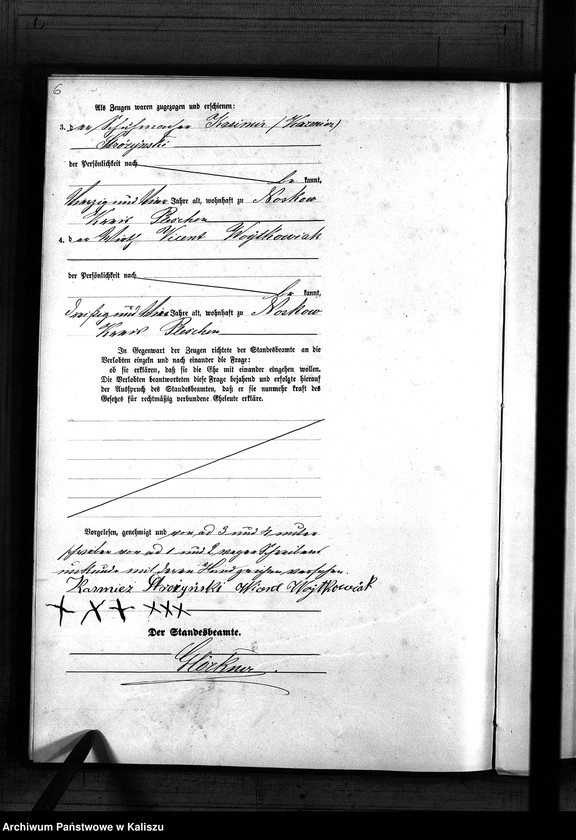 6
Als Zeugen waren zugezogen und erschienen:
3. der Schuhmacher Kasimir (Kazmier)
Strozynski
der Persönlichkeit nach
be kannt,
vierzig und vier Jahre alt, wohnhaft zu Noskow
Kreis Pleschen
4. der Wirth Vicent Woytkowiak
der Persönlichkeit nach
be kannt,
dreißig und vier Jahre alt, wohnhaft zu Noskow
Kreis Pleschen
In Gegenwart der Zeugen richtete der Standesbeamte an die
Verlobten einzeln und nach einander die Frage:
ob sie erklären, daß sie die Ehe mit einander eingehen wollen.
Die Verlobten beantworteten diese Frage bejahend und erfolgte hierauf
der Ausspruch des Standesbeamten, daß er sie nunmehr kraft des
Gesetzes für rechtmäßig verbundene Eheleute erkläre.
Vorgelesen, genehmigt und von ad 3 und 4 unter
schrieben von ad 1 und 2 wegen Schreibens
unkunde mit deren Handzeichen versehen.
Kazmiez Strozyński Wicend Wojtkowiak
+ X + XXX
Der Standesbeamte.
Archiwum Państwowe w Kaliszu